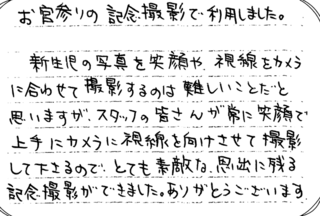 お宮参りの記念撮影で利用しました。
新生児の写真を笑顔や、視線をカメラ
に合わせて撮影するのは難しいことだと
思いますが、スタッフの皆さんが常に笑顔で
上手にカメラに視線を向けさせて撮影
して下さるので、とても素敵な、思出に残る
記念撮影ができました。ありがとうございます